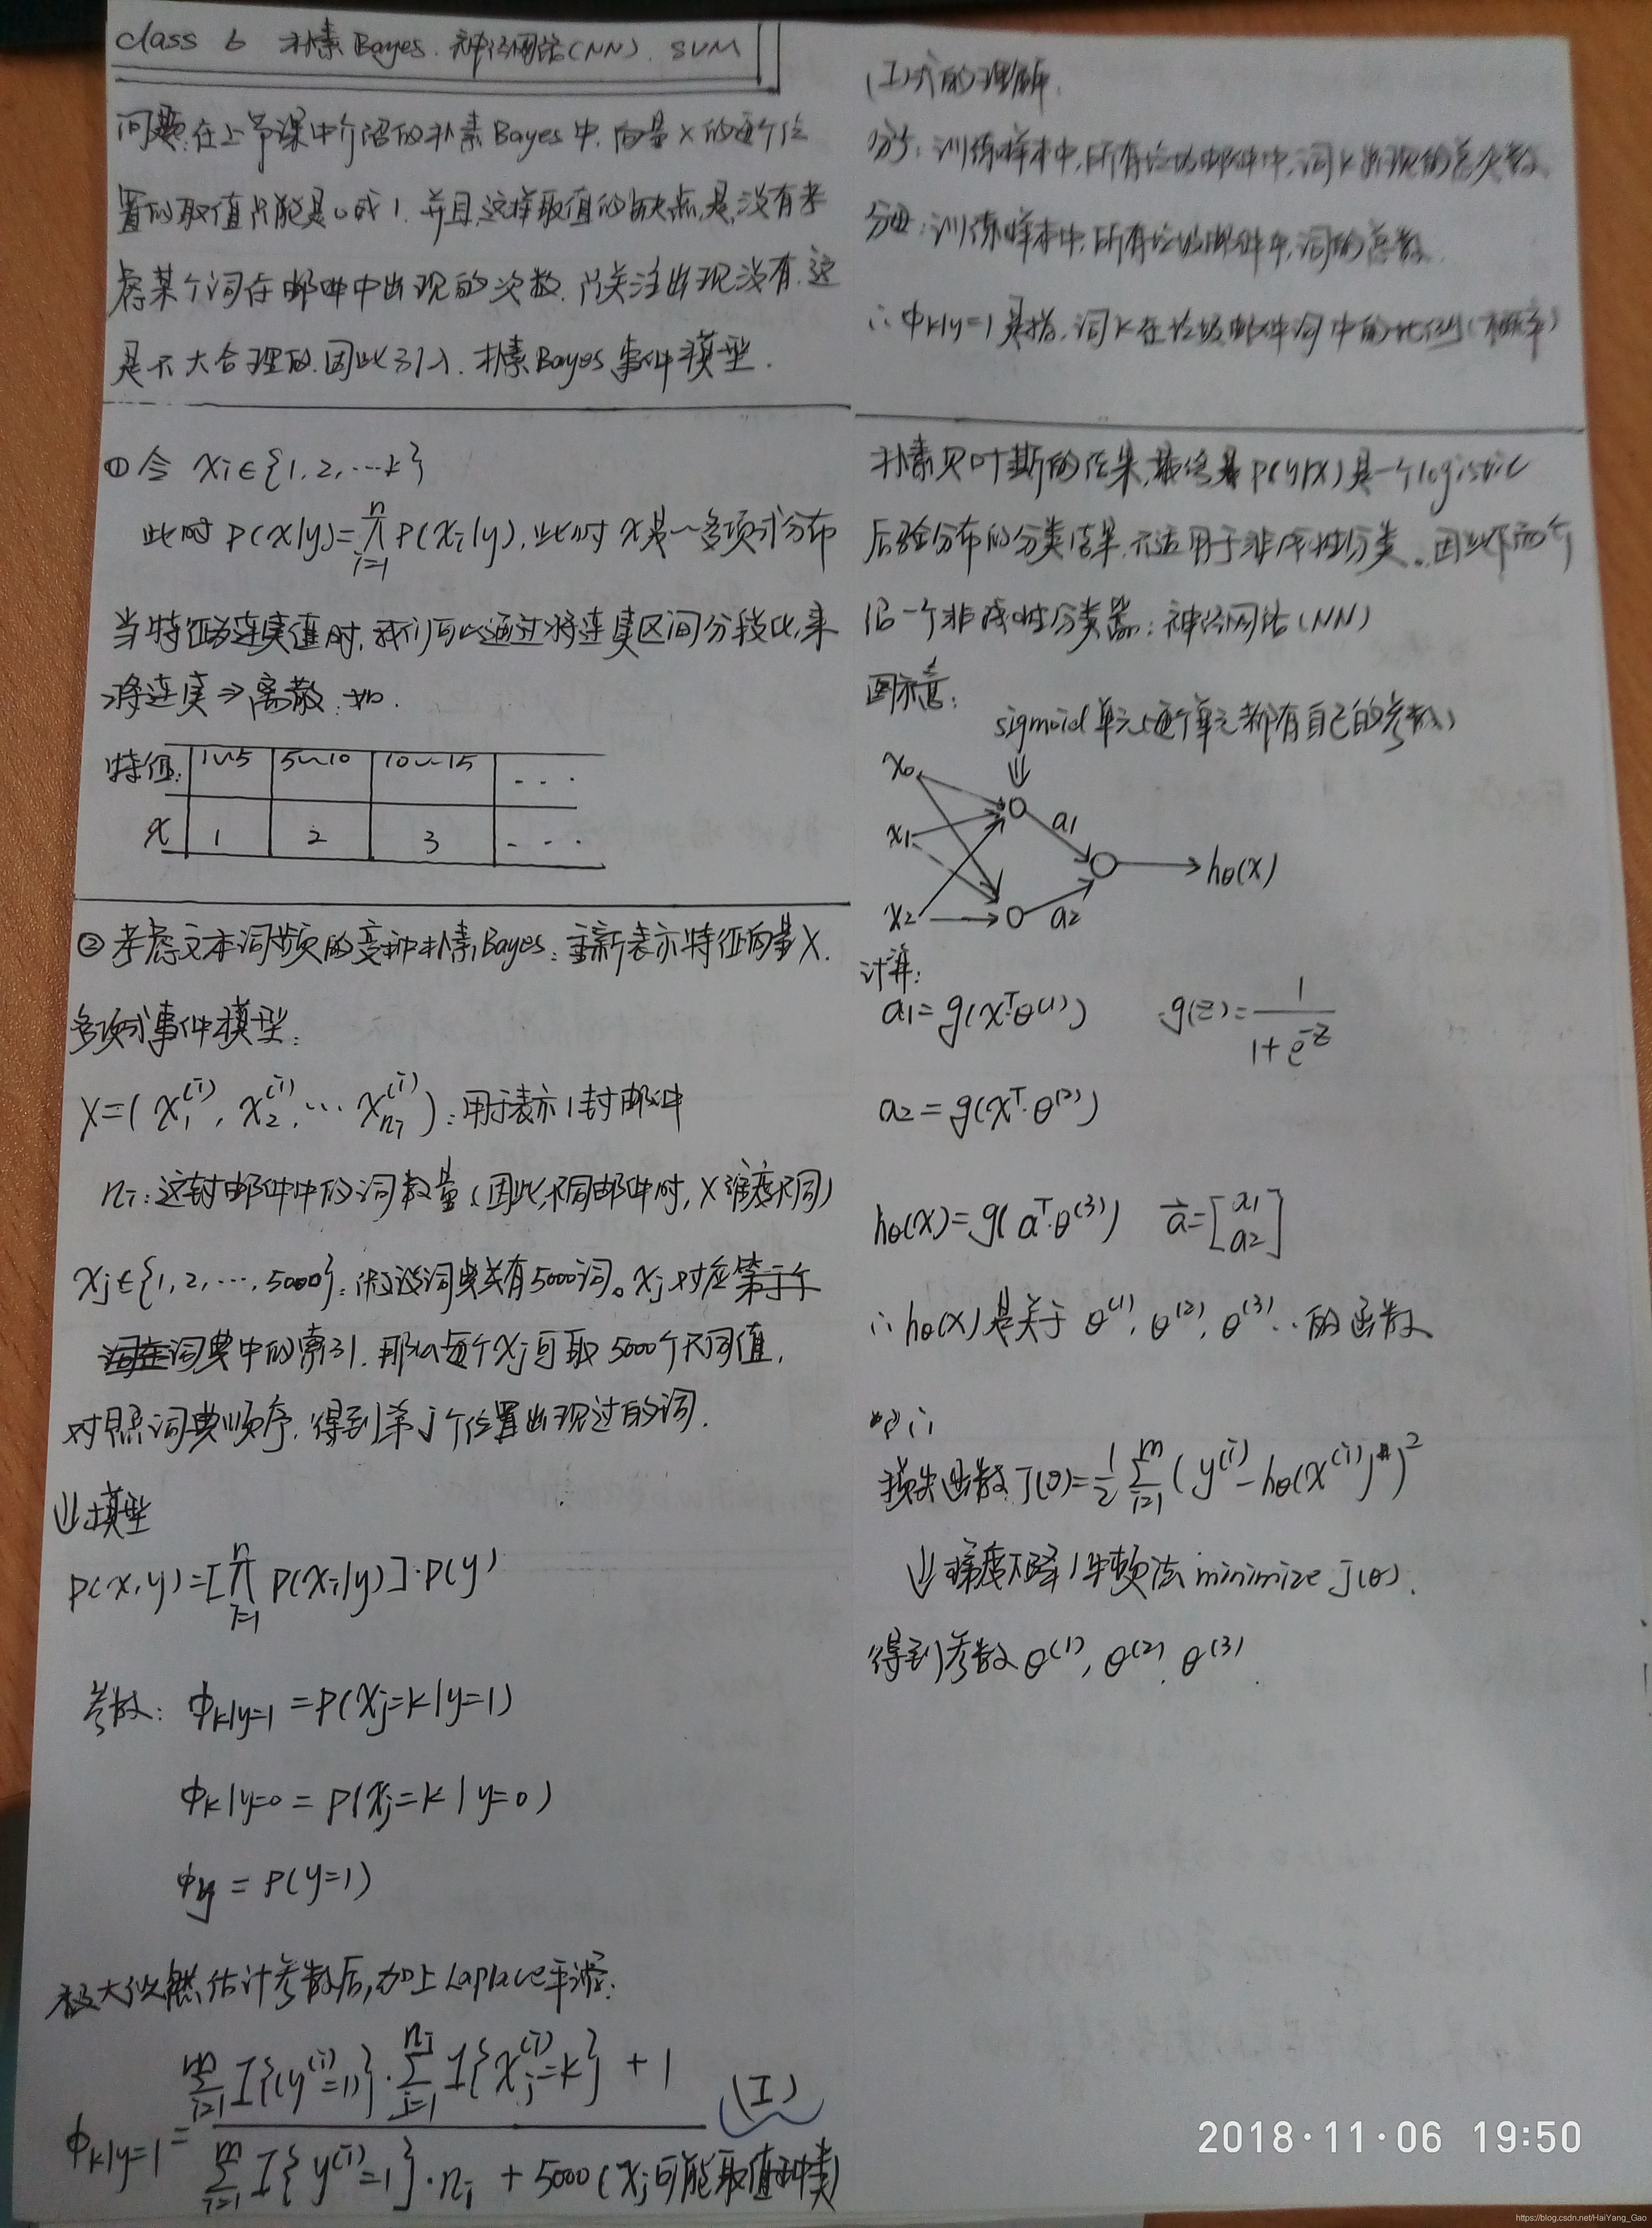 class 6 朴素Bayes. 神经网络(NN). SVM
问题:在上节课中介绍的朴素Bayes中,向量x的每个位
置的取值只能是0或1.并且这样取值的缺点是,没有考
虑某个词在邮件中出现的次数.只关注出现没有.这
是不大合理的.因此引入.朴素Bayes事件模型.
①令 xi∈{1,2,…k}
此时 P(x|y)=∏_{i=1}^{n} P(xi|y),此时x是一多项式分布
当特征为连续值时,我们可以通过将连续区间分段化,来
将连续⇒离散.如.
特征: 1~5 5~10 10~15 ...
x 1 2 3 ...
②考虑文本词频的变种朴素Bayes:重新表示特征向量X.
多项式事件模型:
X=(x_1^{(i)}, x_2^{(i)}, … x_{ni}^{(i)}):用于表示1封邮件
ni:这封邮件中的词数量(因此,不同邮件时,X维度不同)
xj∈{1,2,…,5000}:假设词典共有5000词。xj对应第j个
词在词典中的索引.那么每个xj可取5000个不同值,
对照词典顺序,得到第j个位置出现过的词.
⇓模型
P(x,y)=[∏_{i=1}^{n} P(xi|y)]·P(y)
参数: ϕ_{k|y=1} = P(xj=k|y=1)
ϕ_{k|y=0} = P(xj=k|y=0)
ϕ_y = P(y=1)
极大似然估计参数后,加上Laplace平滑:
ϕ_{k|y=1} = \frac{∑_{i=1}^{m} I{(y^{(i)}=1)}·∑_{j=1}^{ni} I{x_j^{(i)}=k} + 1}{∑_{i=1}^{m} I{y^{(i)}=1}·ni + 5000(xj可能取值种类)} (I)
(I)式的理解.
分子:训练样本中,所有垃圾邮件中,词k出现的总次数
分母:训练样本中,所有垃圾邮件中,词的总数.
∴ϕ_{k|y=1}是指,词k在垃圾邮件词中的比例(概率)
朴素贝叶斯的结果,最终是P(y|x)是一个logistic
后验分布的分类结果.不适用于非线性分类.因此下面介
绍一个非线性分类器:神经网络(NN)
图示意:
sigmoid单元(每个单元都有自己的参数)
⇓
x0
x1
x2
a1
a2
hθ(x)
计算:
a1=g(x^T·θ^{(1)}) g(z)=\frac{1}{1+e^{-z}}
a2=g(x^T·θ^{(2)})
hθ(x)=g(a^T·θ^{(3)}) \vec{a}=[a1 a2]
∴hθ(x)是关于θ^{(1)},θ^{(2)},θ^{(3)}..的函数
损失函数J(θ)=\frac{1}{2}∑_{i=1}^{m}(y^{(i)}-hθ(x^{(i)}))^2
⇓梯度下降/牛顿法minimize J(θ).
得到参数θ^{(1)},θ^{(2)},θ^{(3)}
2018·11·06 19:50
https://blog.csdn.net/HaiYang_Gao